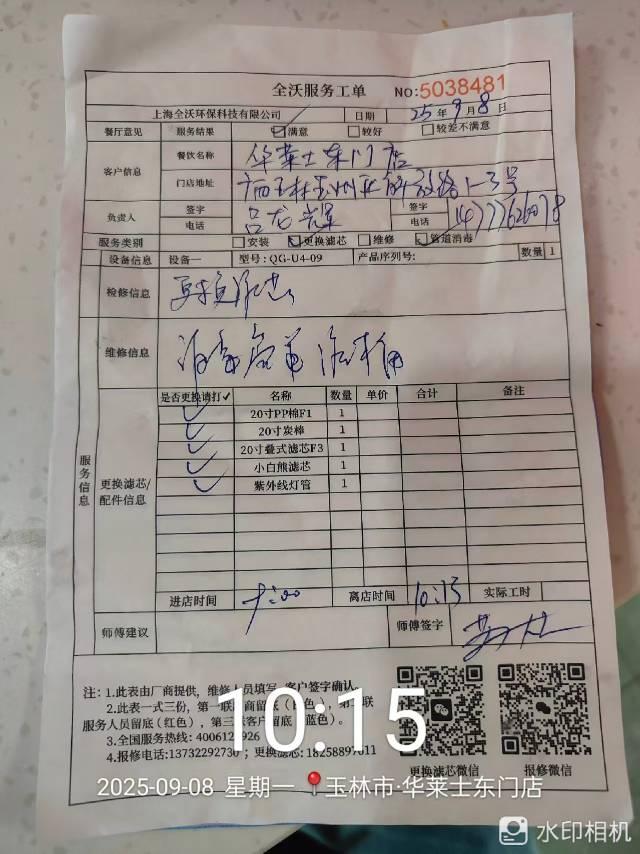 全沃服务工单 NO:5038481
上海全沃环保科技有限公司 日期 25年9月8日
餐厅意见 服务结果 ☑满意 □较好 □较差不满意
客户信息 餐饮名称 华莱士东门店
门店地址
负责人 签字 吕龙 签字
电话 电话
服务类别 □安装 ☑更换滤芯 □维修 ☑管道消毒
设备信息 设备一 型号:QG-U4-09 产品序列号: 数量 1
检修信息
维修信息
服务信息 更换滤芯/配件信息
是否更换请打✓ 名称 数量 单价 合计 备注
✓ 20寸PP棉F1 1
✓ 20寸炭棒 1
✓ 20寸叠式滤芯F3 1
✓ 小白熊滤芯 1
✓ 紫外线灯管 1
进店时间 9:00 离店时间 10:15 实际工时
师傅建议 师傅签字
注:1.此表由厂商提供,维修人员填写,客户签字确认
2.此表一式三份,第一联
服务人员留底(红色),第三联客户留底(蓝色)。
3.全国服务热线:
4.报修电话:13732292730;更换滤芯:18258897011
更换滤芯微信 报修微信
10:15
2025-09-08 星期一 玉林市·华莱士东门店
水印相机